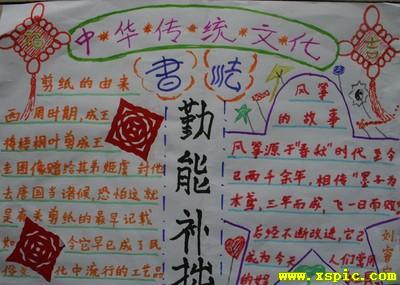 福
中*华*传*统*文*化
吉
書法
剪纸的由来
西周时期,成王
将梧桐叶剪成玉
圭图像赠给其弟姬虞,封他
去唐国当诸侯,恐怕这就
是有关剪纸的最早记载
如 今它早已成了民
俗文 化中流行的工艺品
勤能补拙
风筝
的故事
风筝源于"春秋"时代至今
已两千余年,相传"墨子为
木鸢,三年而成,飞一日而败"
后经不断改进,它已
成为今天 人们常用
的
刘
www.xspic.com